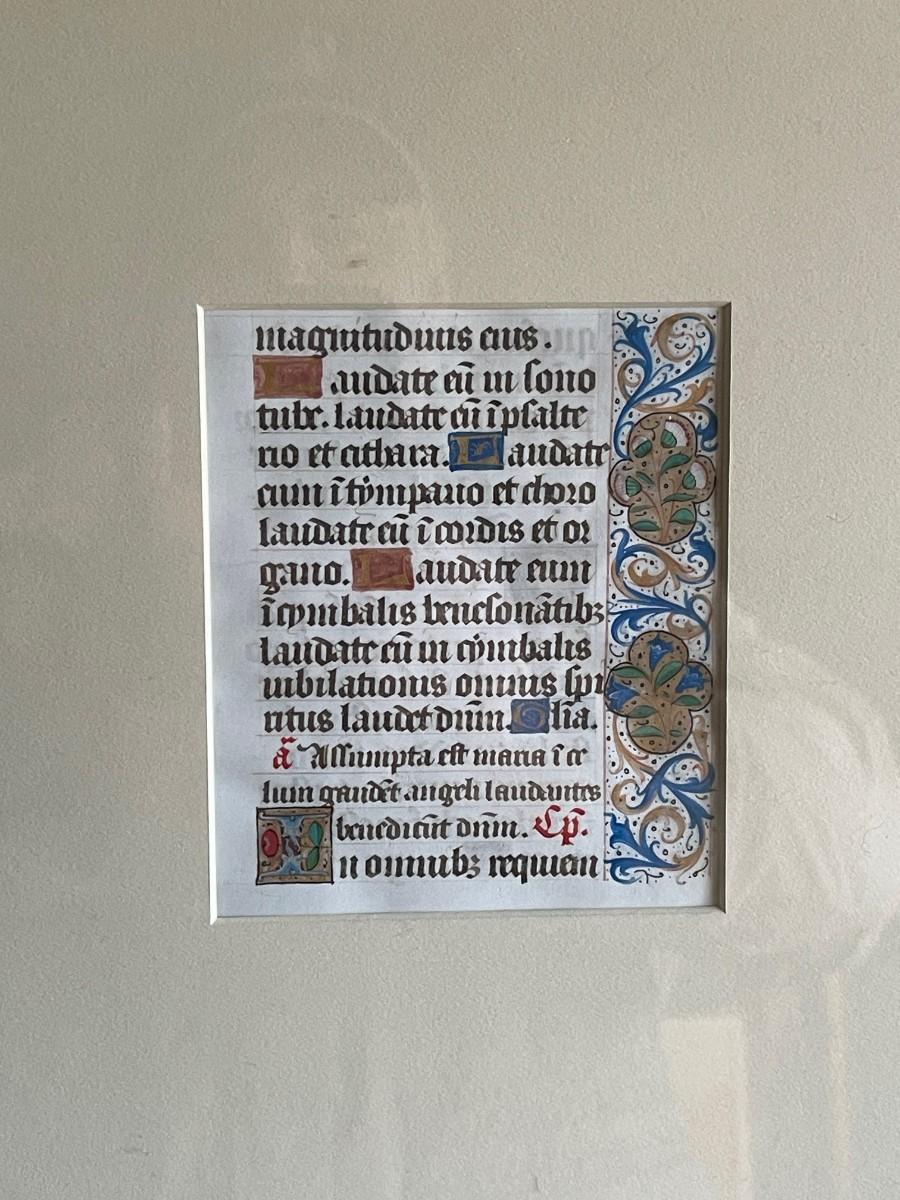 magnitudinis eius.
Laudate eũ in sono
tube. laudate eũ ĩ psalte
rio et cithara. Laudate
eum ĩ tẏmpano et choro
laudate eũ ĩ cordis et or
gano. Laudate eum
ĩ cymbalis benesonãtibꝫ
laudate eũ in cẏmbalis
iubilationis omnis spi
ritus laudet dñm. Glĩa.
ã Assumpta est maria ĩ ce
lum gaudẽt angeli laudantes
benedicũt dñm. Cp̃.
In omnibꝫ requiem